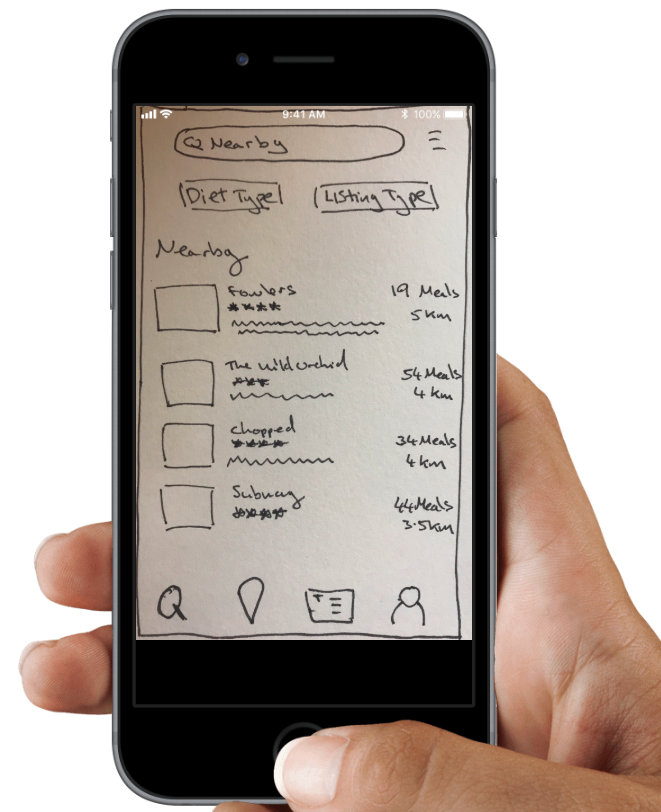 9:41 AM 100%
Nearby
Diet Type Listing Type
Nearby
Fowlers 19 Meals
5 km
The Wild Orchid 54 Meals
4 km
Chopped 34 Meals
4 km
Subway 44 Meals
3.5km